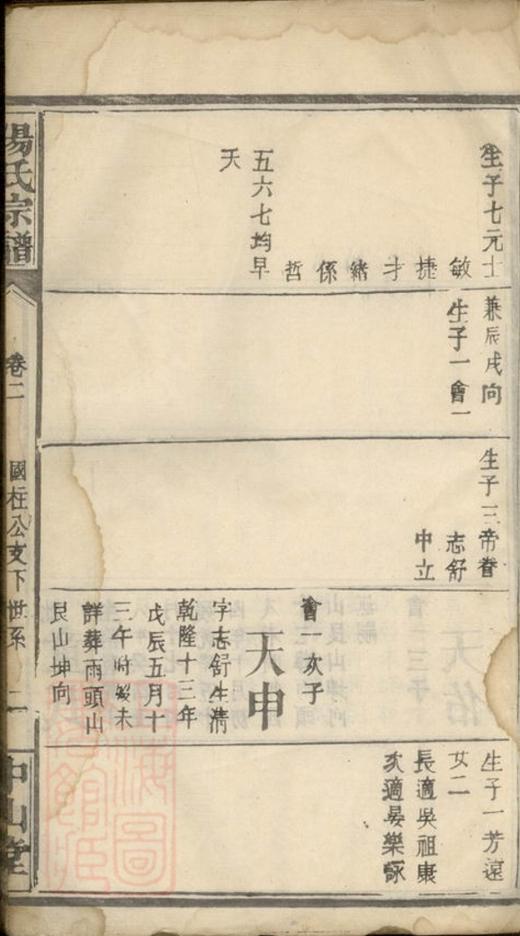 生子七元士
敏
捷
才
緒
係
哲
五六七均早
夭
兼辰戌向
生子一會一
生子三帝眷
志舒
中立
會一次子
天申
字志舒生清
乾隆十三年
戊辰五月十
三午時殁未
詳葬兩頭山
艮山坤向
生子一芳遠
女二
長適吳祖康
次適晏樂詠
楊氏宗譜
卷二
國柱公支下世系
二
中山堂